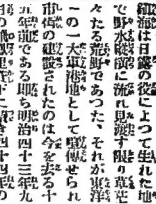 鎭海は日露の役によつて生れた地
で野水縱欲に流れ見渡す限り草茫
々たる荒野であつた、それが東洋
一の一大軍港地として喧傳せられ
市街の建設されたのは今を去る十
五年前である即ち明治四十三年九